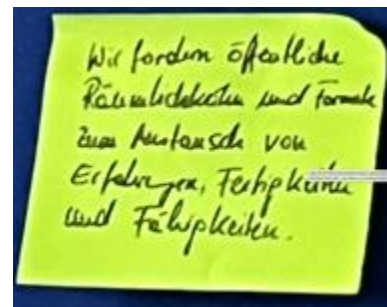 Wir fordern öffentliche
Räumlichkeiten und Formate
zum Austausch von
Erfahrungen, Fertigkeiten
und Fähigkeiten.